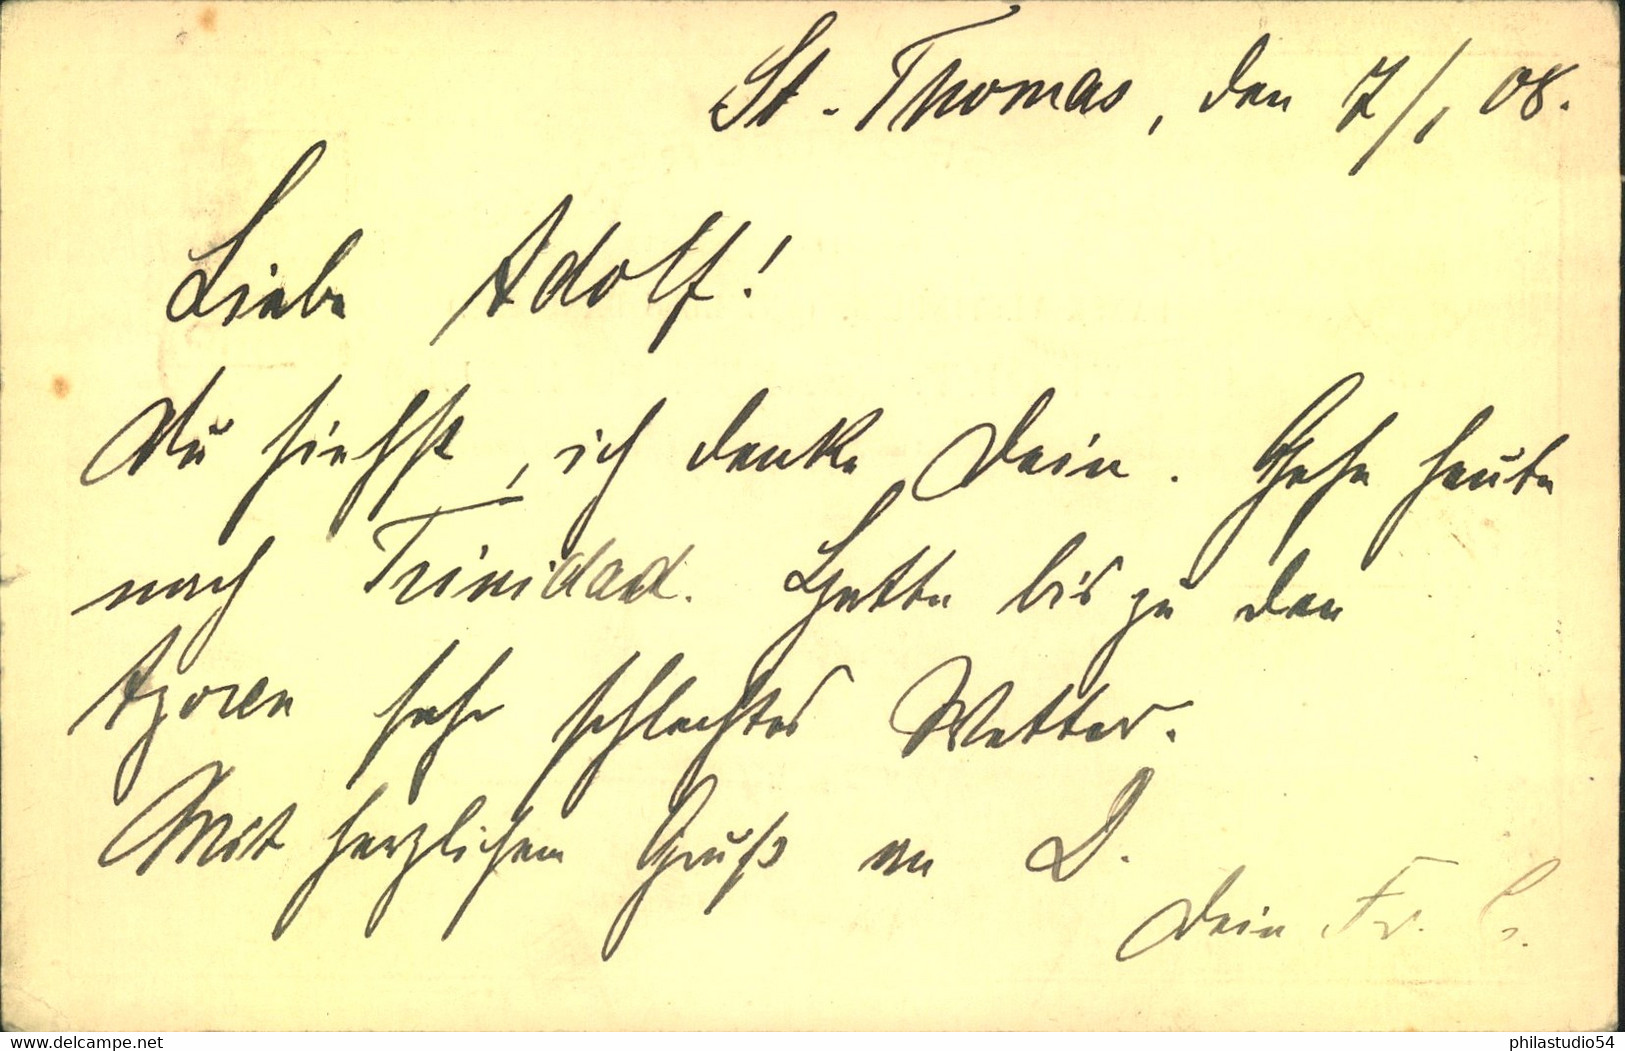 St. Thomas, den 7/1 08.
Liebe Adolf!
Du siehst, ich denke Dein. Gehe heute
nach Trinidad. Hatte bis zu den
Azoren sehr schlechtes Wetter.
Mit herzlichem Gruß an D.
Dein Fr.
www.delcampe.net
philastudio54